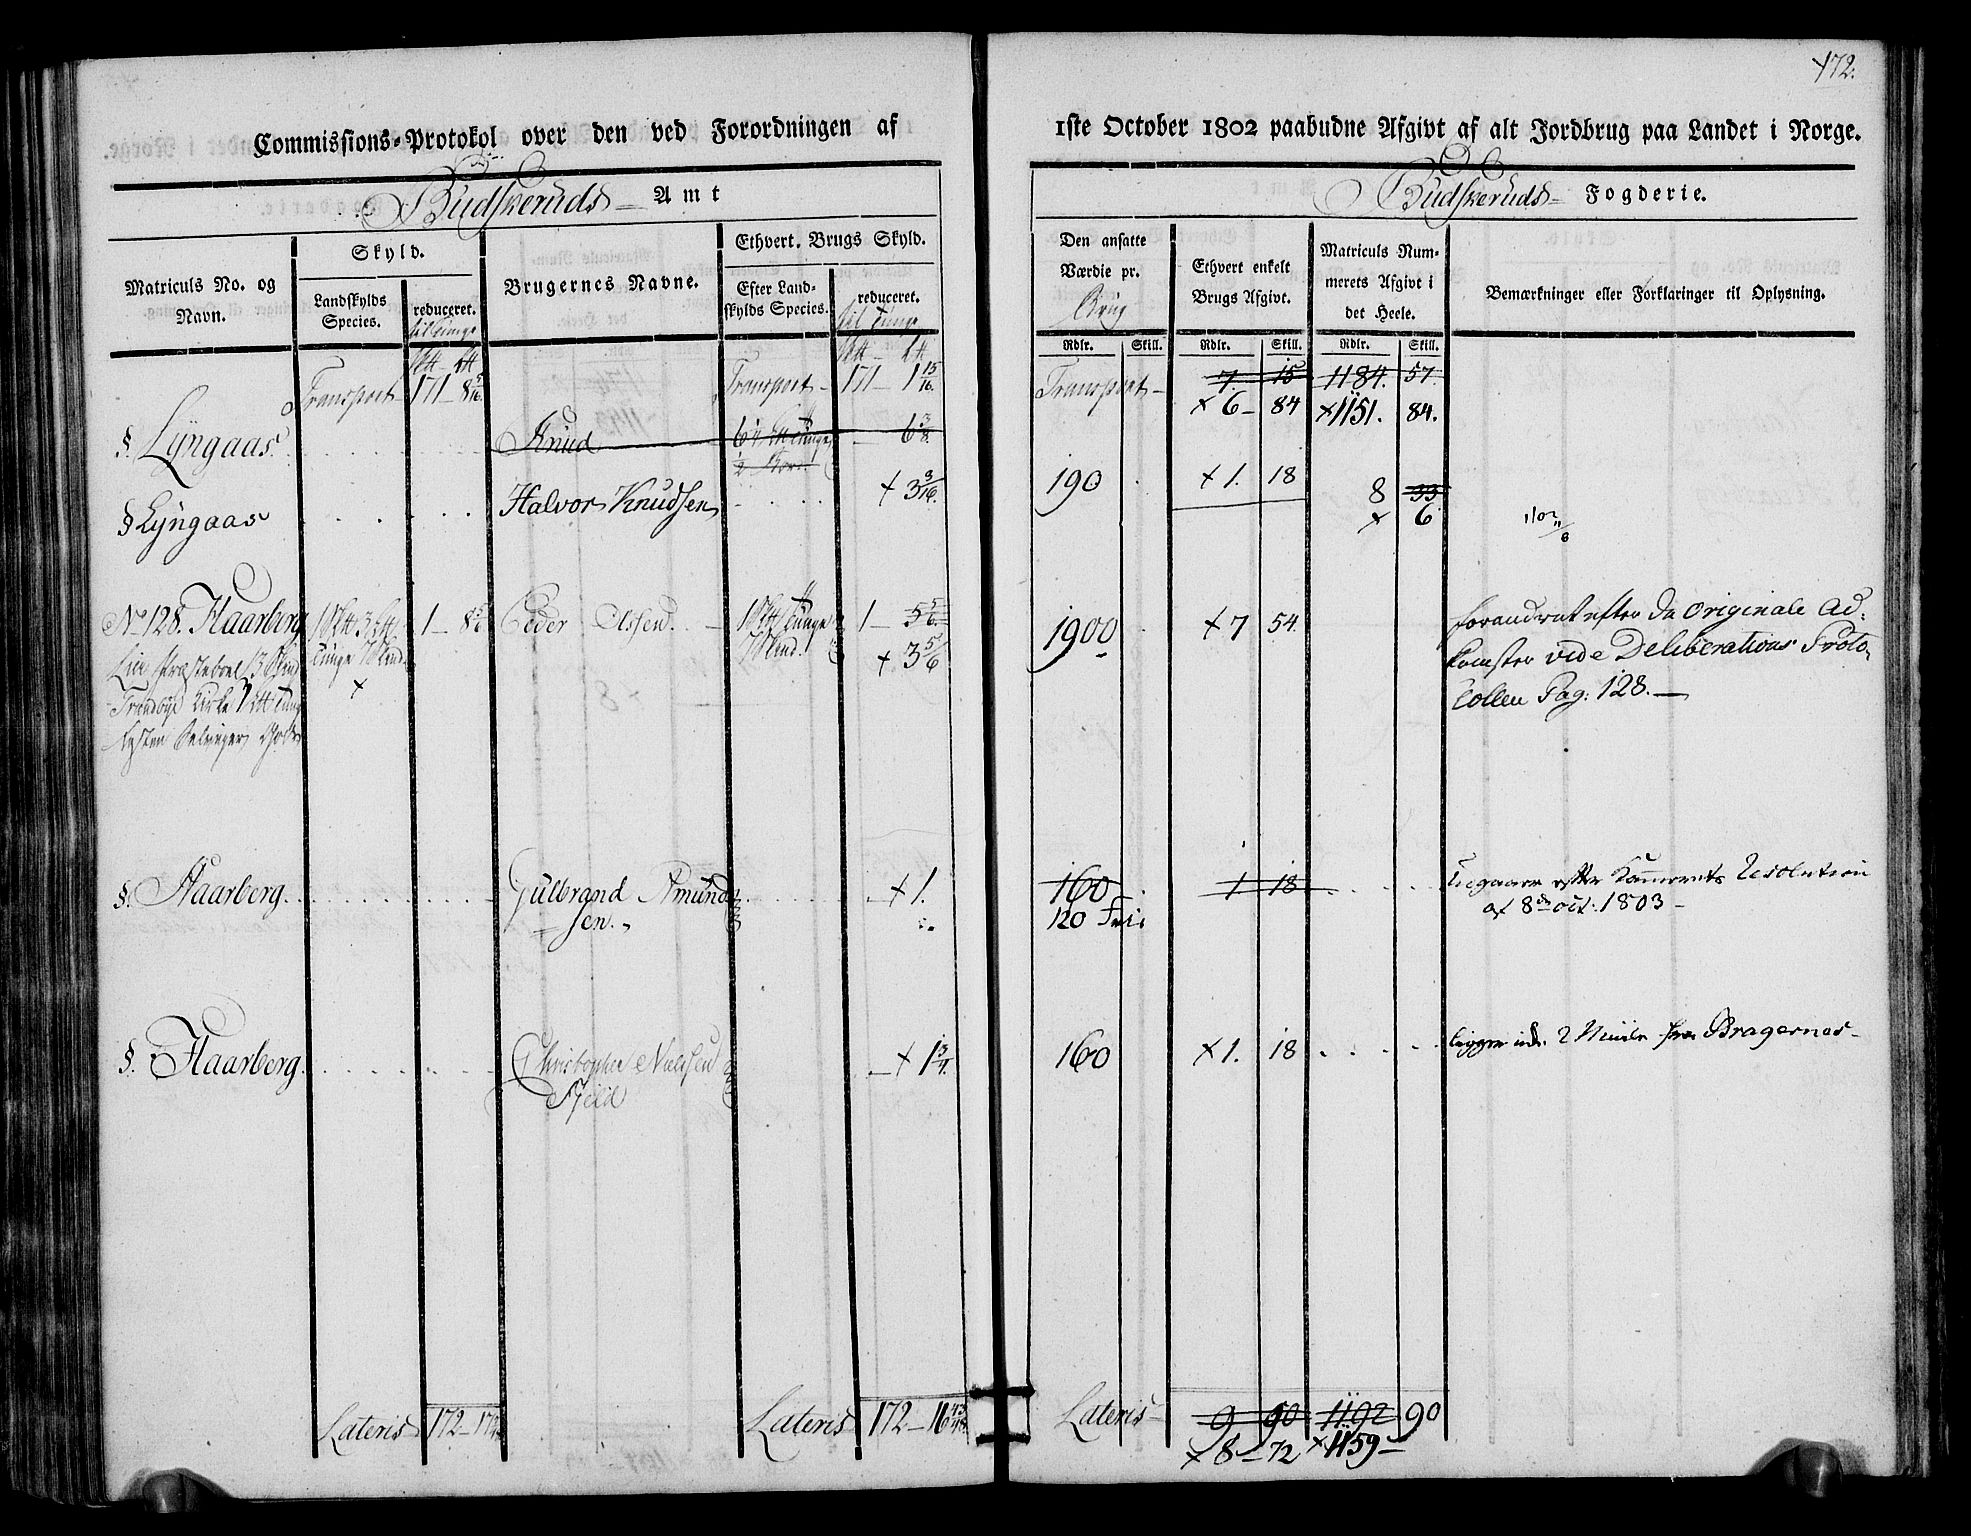 172.
Commissions-Protokol over den ved Forordningen af
1ste October 1802 paabudne Afgivt af alt Jordbrug paa Landet i Norge.
Budskeruds Amt
Budskeruds Fogderie.
Matriculs No. og Navn.
Skyld.
Landskylds Species.
reduceret.
Brugernes Navne.
Ethvert Brugs Skyld.
Efter Landskylds Species.
reduceret.
Den ansatte Værdie pr. Brug
Ethvert enkelt Brugs Afgivt.
Matriculs Nummerets Afgivt i det Heele.
Bemærkninger eller Forklaringer til Oplysning.
Rdlr. Skill. Rdlr. Skill. Rdlr. Skill.
Transport 171 - 8 5/16 Transport - 171 - 1 15/16 Transport - 7. 15 1184. 57.
× 6 - 84 × 1151. 84.
§ Lyngaas Knud 6 3/8
§ Lyngaas Halvor Knudsen + 3 3/16 190 + 1. 18 8 33
× 6
No 128. Haarberg 1 - 8 5/6 Peder Olssen 1 - 5 5/6 1900 + 7 54.
+ 3 5/6
forandret efter de originale Ad-
komster vide Deliberations Proto-
collen Pag: 128. -
§. Haarberg Gulbrand Amund
sen + 1. 160 1 18
120 Frie
liggaar efter Kammerets Resolution
af 8de oct: 1803 -
§. Haarberg Christopher Nielsen
Fjeld + 1 3/4. 160 × 1. 18
ligger inden 2 Miile fra Bragernes -
Lateris 172 - Lateris 172 - 16 Lateris - 9 90 1192 90
× 8 - 72 × 1159 -